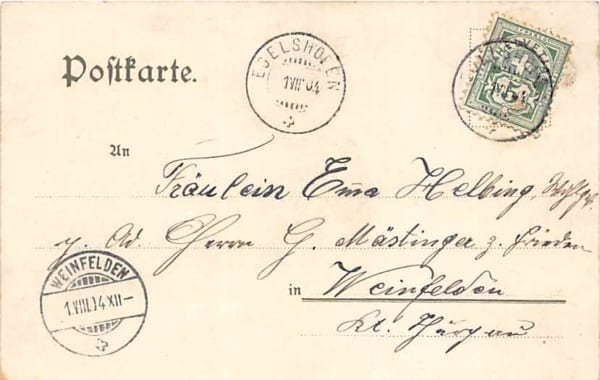 Postkarte.
EGELSHOFEN
1 VIII 04
HELVETIA
5
An
Fräulein Emma Helbing,
p. Ad. Herrn G. Mästinger z. Frieden
in Weinfelden
Kt. Thurgau
WEINFELDEN
1.VIII.04 XII–